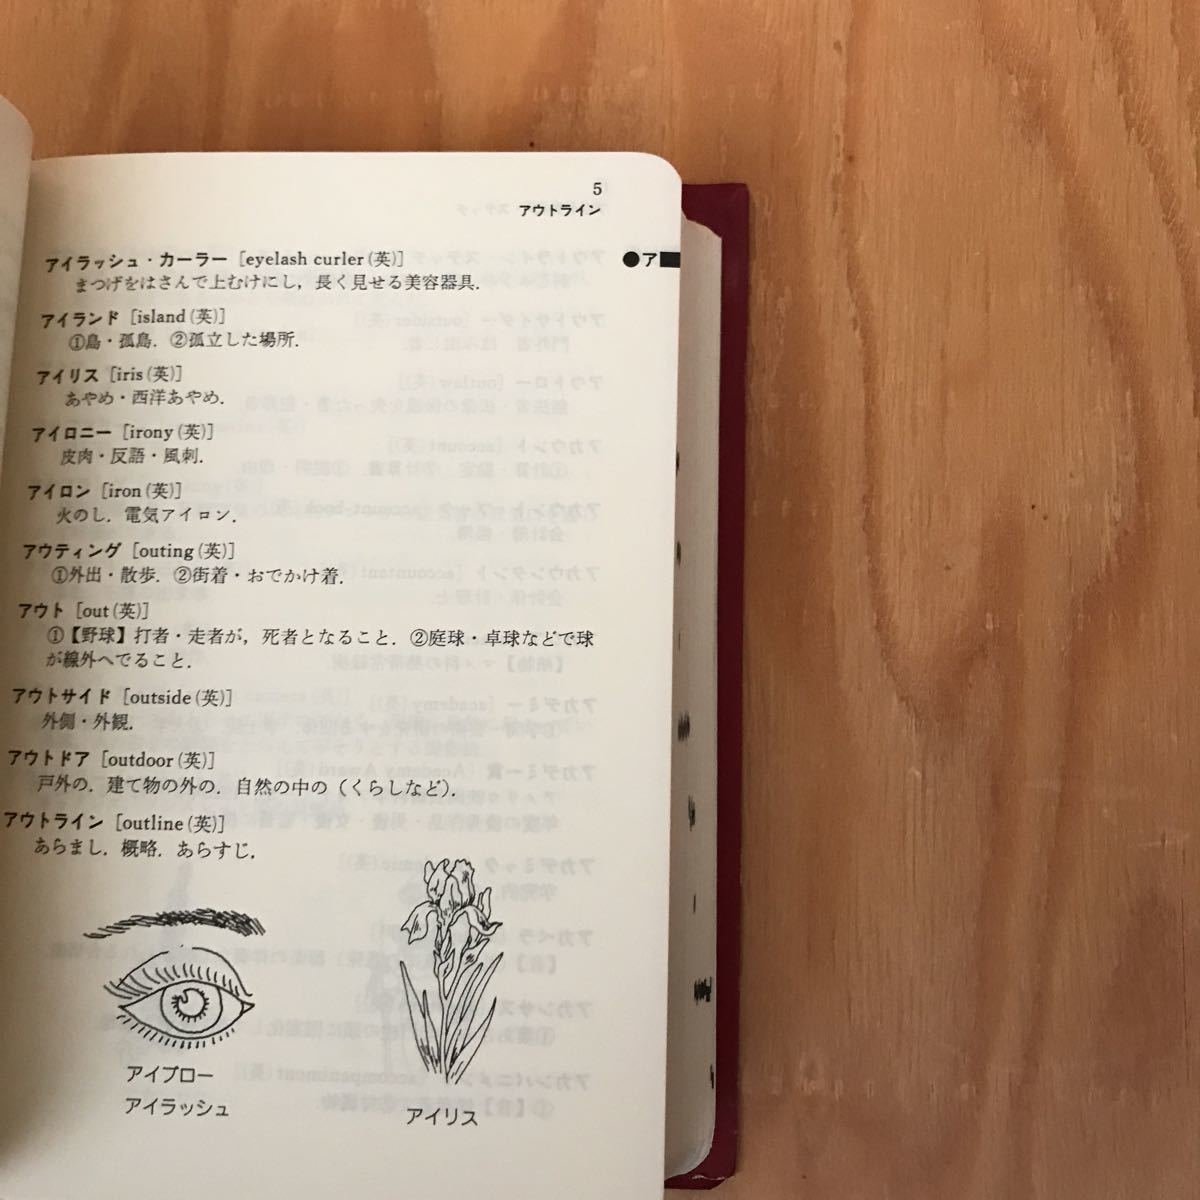 5
アウトライン
●ア
アイラッシュ・カーラー [eyelash curler(英)]
まつげをはさんで上むけにし，長く見せる美容器具.
アイランド [island(英)]
①島・孤島. ②孤立した場所.
アイリス [iris(英)]
あやめ・西洋あやめ.
アイロニー [irony(英)]
皮肉・反語・風刺.
アイロン [iron(英)]
火のし. 電気アイロン.
アウティング [outing(英)]
①外出・散歩. ②街着・おでかけ着.
アウト [out(英)]
①【野球】打者・走者が，死者となること. ②庭球・卓球などで球
が線外へでること.
アウトサイド [outside(英)]
外側・外観.
アウトドア [outdoor(英)]
戸外の. 建て物の外の. 自然の中の（くらしなど）.
アウトライン [outline(英)]
あらまし. 概略. あらすじ.
アイブロー
アイラッシュ
アイリス